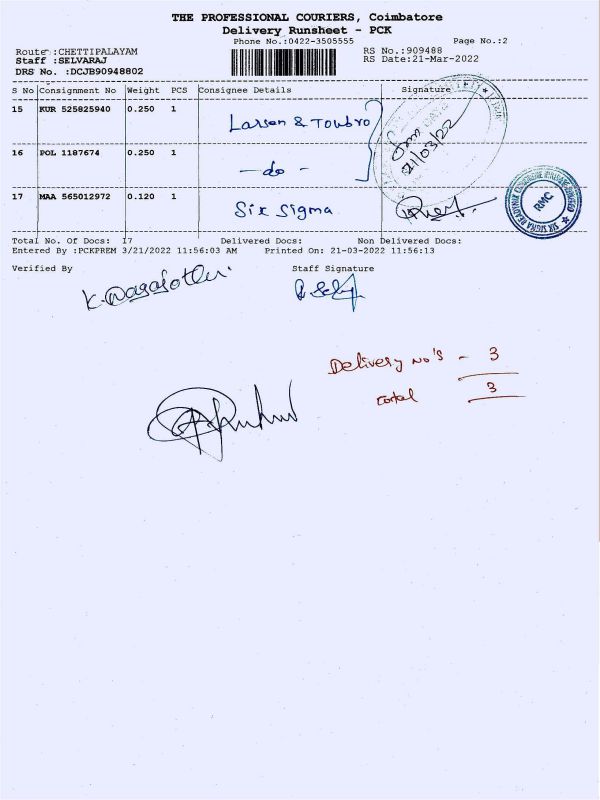 THE PROFESSIONAL COURIERS, Coimbatore
Delivery Runsheet - PCK
Phone No.:0422-3505555 Page No.:2
Route :CHETTIPALAYAM RS No.:909488
Staff :SELVARAJ RS Date:21-Mar-2022
DRS No. :DCJB90948802
S No Consignment No Weight PCS Consignee Details Signature
15 KUR 525825940 0.250 1 Larsen & Toubro
21/03/22
16 POL 1187674 0.250 1 - do -
17 MAA 565012972 0.120 1 Six Sigma
RMC
Total No. Of Docs: 17 Delivered Docs: Non Delivered Docs:
Entered By :PCKPREM 3/21/2022 11:56:03 AM Printed On: 21-03-2022 11:56:13
Verified By Staff Signature
Delivery No's - 3
Total 3